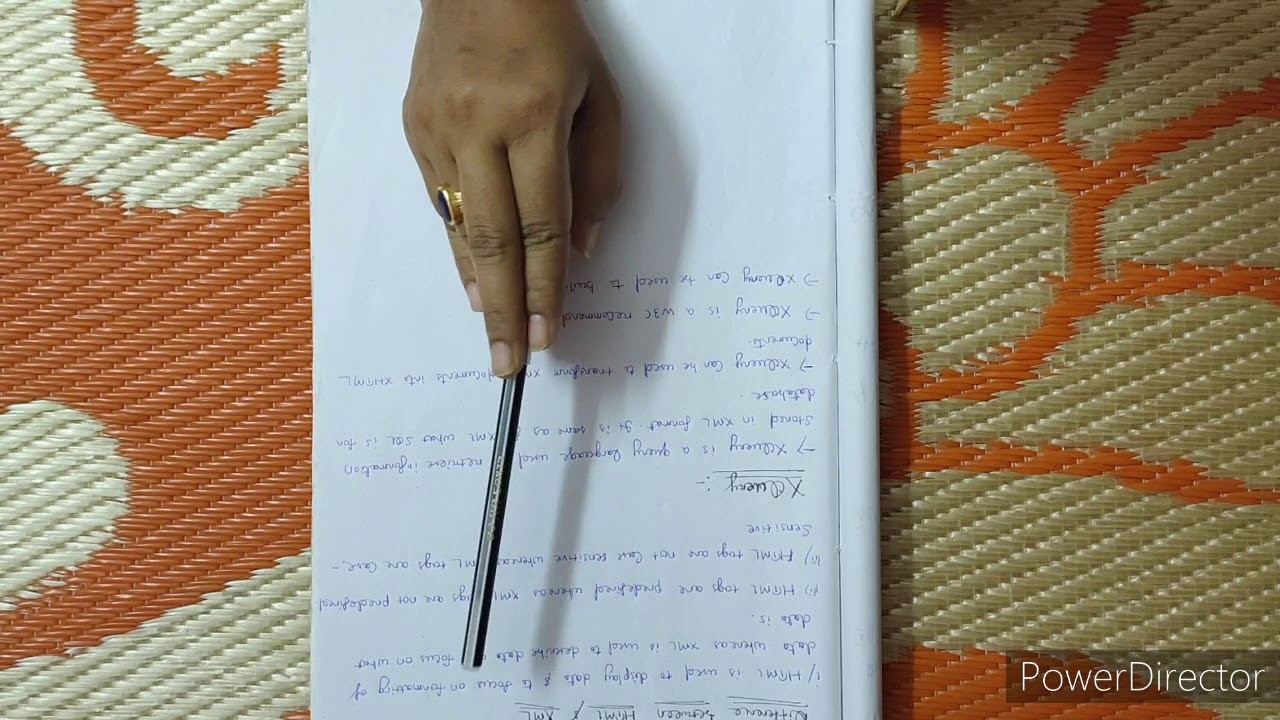 Difference between HTML & XML
i) HTML is used to display data & to focus on formating of
data whereas XML is used to describe data focus on what
data is.
ii) HTML tags are predefined whereas XML tags are not predefined
iii) HTML tags are not Case sensitive whereas XML tags are Case-
Sensitive
XQuery :-
→ XQuery is a query language used retrieve information
stored in XML format. It is same as XML what SQL is for
database.
→ XQuery Can be used to transform documents into XHTML
documents.
→ XQuery is a W3C recommend
→ XQuery Can be used to
PowerDirector